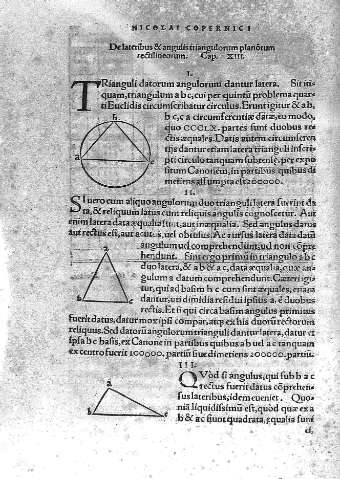 NICOLAI COPERNICI
De lateribus & angulis triangulorum planorum
rectilineorum. Cap. XIII.
I.
TRianguli datorum angulorum dantur latera. Sit in-
quam, triangulum a b c, cui per quintū problema quar-
ti Euclidis circumscribatur circulus. Erunt igitur & a b,
b c, c a circumferentiæ datæ, eo modo,
quo CCCLX. partes sunt duobus re-
ctis æquales. Datis autem circumferen-
tijs dantur etiam latera trianguli inscri-
pti circulo tanquam subtensæ, per expo
situm Canonem, in partibus quibus di
metiens assumpta est 200000.
b
a
c
II.
SI uero cum aliquo angulorum duo trianguli latera fuerint da
ta, & reliquum latus cum reliquis angulis cognoscetur. Aut
enim latera data æqualia sunt, aut inæqualia. Sed angulus datus
aut rectus est, aut acutus, uel obtusus. Ac rursus latera data datū
angulum uel comprehendunt, uel non cōpre
hendunt. Sint ergo primum in triangulo a b c
duo latera, & a b & a c, data æqualia, quæ an-
gulum a datum comprehendunt. Cæteri igi-
tur, qui ad basim b c cum sint æquales, etiam
dantur, uti dimidia residui ipsius a. è duobus
rectis. Et si qui circa basim angulus primitus
fuerit datus, datur mox ipsi compar, atque ex his duorū rectorum
reliquus. Sed datorū angulorum trianguli dantur latera, datur et
ipsa b c basis, ex Canone in partibus quibus a b uel a c tanquam
ex centro fuerit 100000. partiū siue dimetiens 200000. partiū.
a
III.
QVòd si angulus, qui sub b a c
rectus fuerit datus cōprehen-
sus lateribus, idem eueniet. Quo-
niā liquidissimū est, quòd quæ ex a
b & a c fiunt quadrata, æqualia sunt
ei,
a
b
c